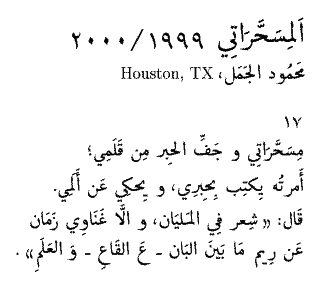 اَلمِسَحَّرَاتِي ١٩٩٩/٢٠٠٠
مَحمُود الجَمَل، Houston, TX
١٧
مِسَحَّرَاتِي و جَفِّ الحِبر مِن قَلَمِي؛
أَمرتُه يِكتِب بِحِبرِي، و يِحكِي عَن أَلَمِي.
قَال: «شِعر فِي المَليَان، و الَّا غَنَاوِي زَمَان
عَن رِيم مَا بَينَ البَان ـ عَ القَاعِ ـ وَ العَلَمِ».